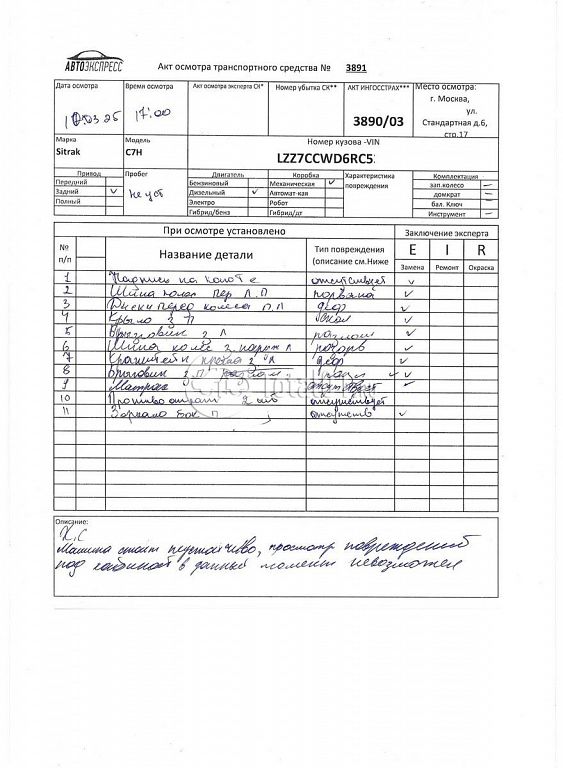 АВТОЭКСПРЕСС
Акт осмотра транспортного средства № 3891
Дата осмотра
Время осмотра
17:00
Акт осмотра эксперта СК*
Номер убытка СК**
АКТ ИНГОССТРАХ***
3890/03
Место осмотра:
г. Москва,
ул.
Стандартная д.6,
стр.17
Марка
Sitrak
Модель
C7H
Номер кузова -VIN
LZZ7CCWD6RC5
Привод
Передний
Задний v
Полный
Пробег
Не уст
Двигатель
Бензиновый
Дизельный v
Электро
Гибрид/бенз
Коробка
Механическая v
Автомат-кая
Робот
Гибрид/дт
Характеристика
повреждения
Комплектация
зап.колесо –
домкрат –
бал. Ключ –
Инструмент –
При осмотре установлено
Заключение эксперта
№
п/п
Название детали
Тип повреждения
(описание см.Ниже
E I R
Замена Ремонт Окраска
1 Надпись на капоте отсутствует v
2 Шина колеса пер Л.П порвана v
3 Диски перед колеса Л.П деф v
4 Крыло З П скол v
5 Брызговик з Л разлом v
6 Шина колес з наружн Л порыв v
7 Кронштейн крыла з Л деф v
8 Брызговик з П разл v v
9 Матрас отсутствует v
10 Противооткат 2 шт отсутствует
11 Зеркало бок П отсутств v
Описание:
Х.С
Машина стоит неустойчиво, просмотр повреждений
под кабиной в данный момент невозможен